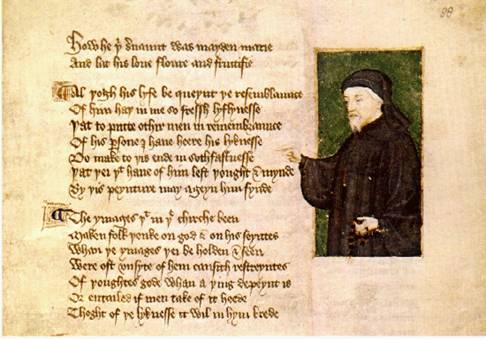 88
How he þͤ ẜuaunt was mayden marie
And lat his loue floure and fructifie
Al þogh his lyfe be queynt þe resemblaunce
Of him haþ in me so fressh lyflynesse
Þat to putte othir men in remembraunce
Of his ꝑsone I haue heere his lyknesse
Do make to þis ende in sothfastnesse
Þat þei þͭ haue of him left þought & mynde
By þis peynture may ageyn him fynde
The ymages þͭ in þͤ chirche been
Maken folk þenke on god & on his seyntes
Whan þe ymages þei be holden & seen
Were oft vnsyte of hem causith restreyntes
Of þoughtes gode whan a þing depeynt is
Or entailed if men take of it heede
Thoght of þe lyknesse it wil in hym brede